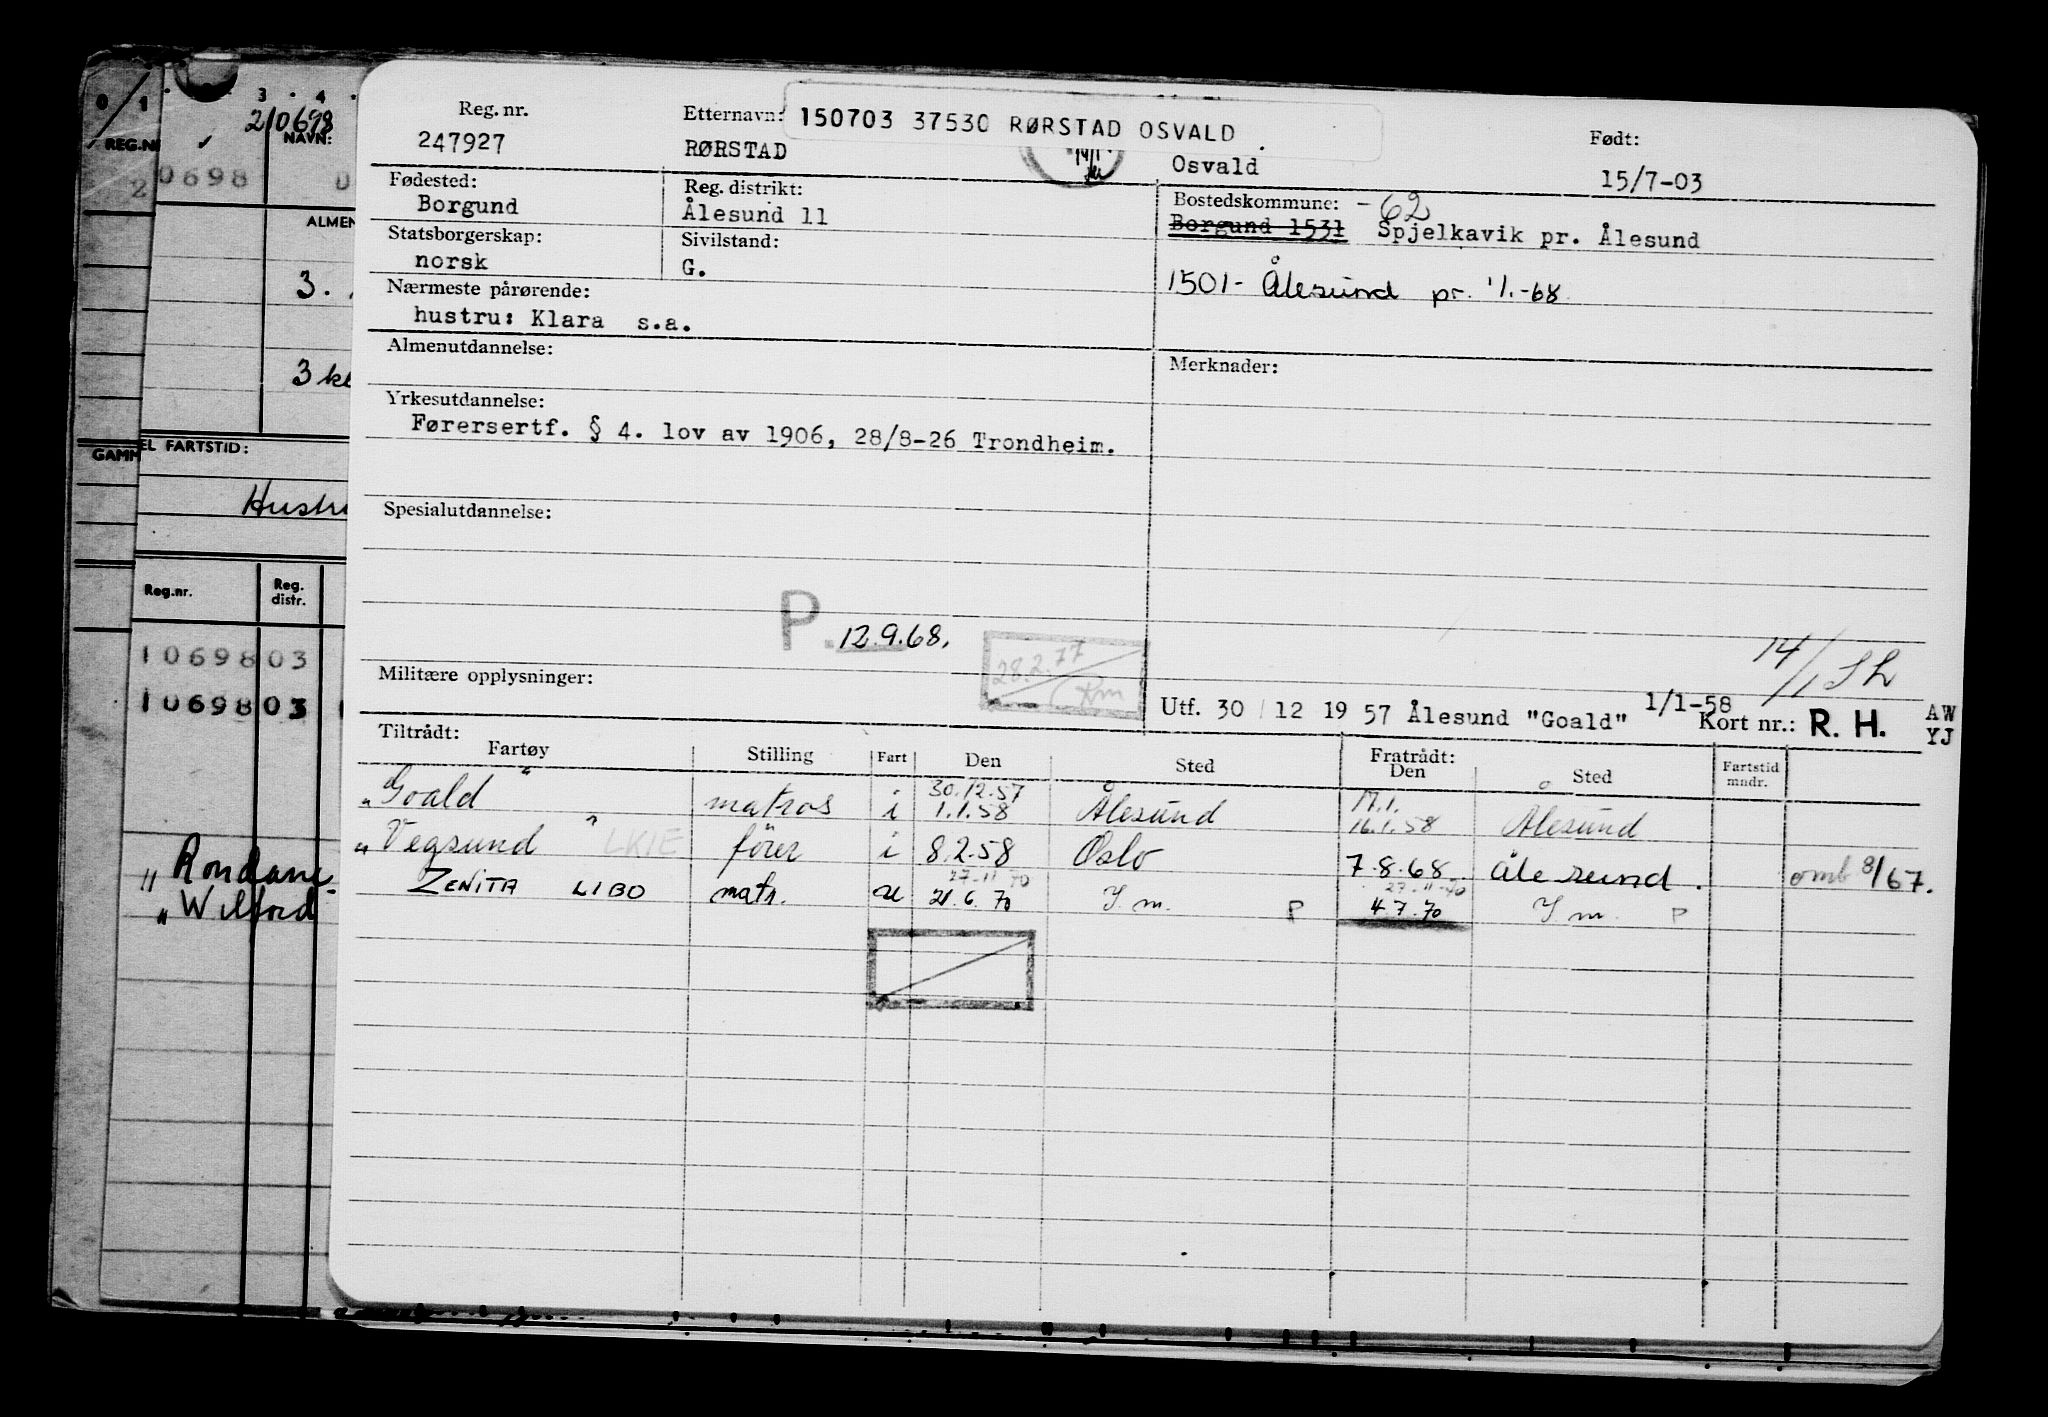 0 1 3 4
210698
REG.NR NAVN:
2 0698
ALMEN
3.
3 kl
EL FARTSTID:
GAMM
Hustr
Reg.nr. Reg. distr.
10698 03
10698 03
" Rondane
" Wilford
150703 37530 RØRSTAD OSVALD
Reg. nr. Etternavn: Født:
247927 RØRSTAD Osvald 15/7-03
Fødested: Reg. distrikt: Bostedskommune: -62
Borgund Ålesund 11 Borgund 1531 Spjelkavik pr. Ålesund
Statsborgerskap: Sivilstand:
norsk G.
1501- Ålesund pr. 1/1-68
Nærmeste pårørende:
hustru: Klara s.a.
Almenutdannelse: Merknader:
Yrkesutdannelse:
Førersertf. § 4. lov av 1906, 28/8-26 Trondheim.
Spesialutdannelse:
P. 12.9.68.
28.2.77
14/1
Militære opplysninger:
Utf. 30/12 1957 Ålesund "Goald" 1/1-58 Kort nr.: R. H. AW YJ
Tiltrådt: Fratrådt:
Fartøy Stilling Fart Den Sted Den Sted Fartstid mndr.
30.12.57 17.1.
"Goald" matros i 1.1.58 Ålesund 16.1.58 Ålesund
"Vegsund" LKIE fører i 8.2.58 Oslo 7.8.68 Ålesund. omb 8/67.
27.11.70 27.11.70
ZENITA LIBO matr. u 21.6.70 I.m. P 4.7.70 I.m. P